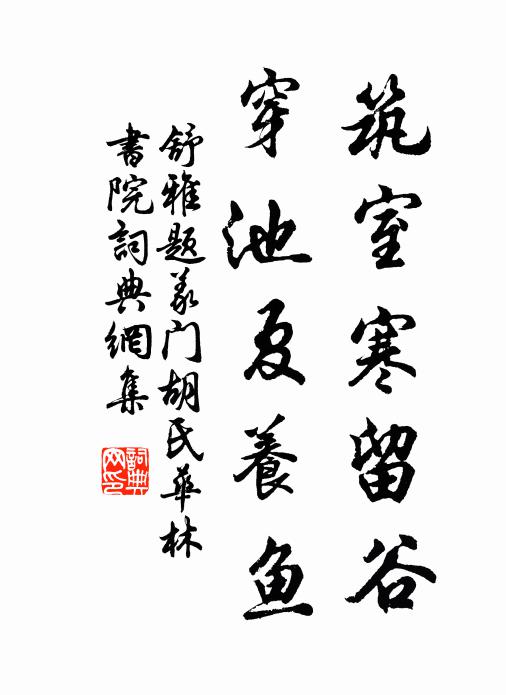 筑室寒留谷
穿池夏養鱼
舒雅题义门胡氏華林
書院詞典網集
詞典网印